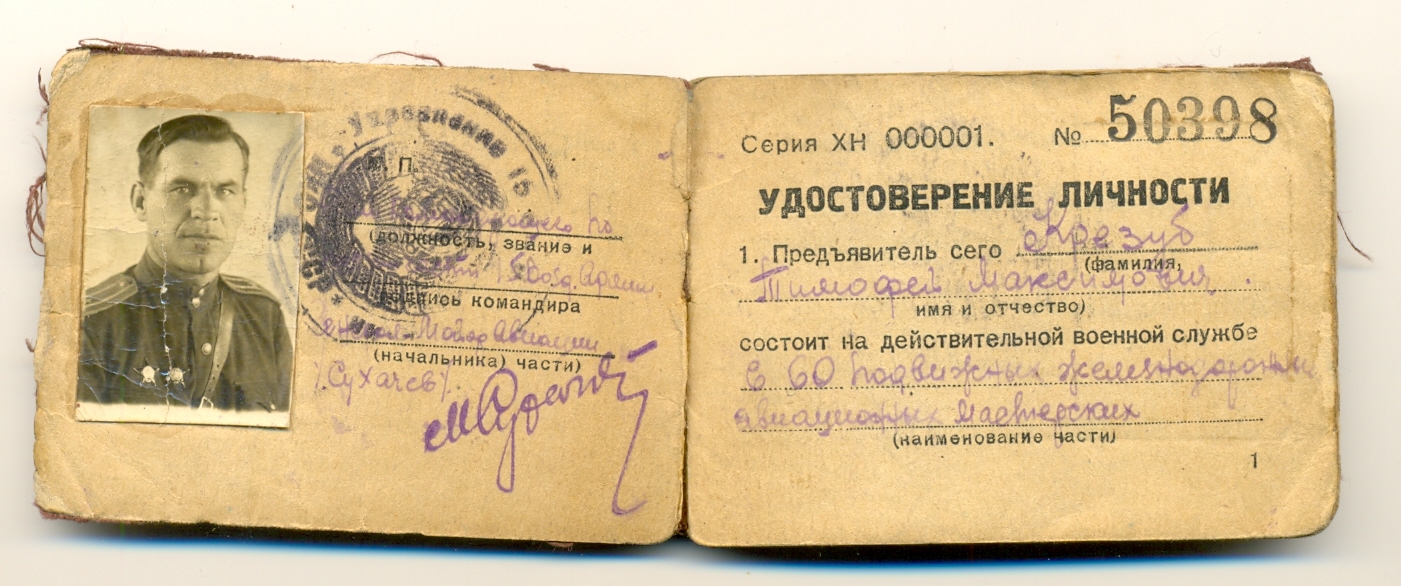 Управлении 15
М. П.
(должность, звание и
Возд. Армии
подпись командира
Генерал-Майор Авиации
(начальника) части)
/Сухачев/.
Серия ХН 000001. № 50398
УДОСТОВЕРЕНИЕ ЛИЧНОСТИ
1. Предъявитель сего Крезуб
(фамилия,
Тимофей Максимович.
имя и отчество)
состоит на действительной военной службе
в 60 подвижных железнодорожных
авиационных мастерских
(наименование части)
1